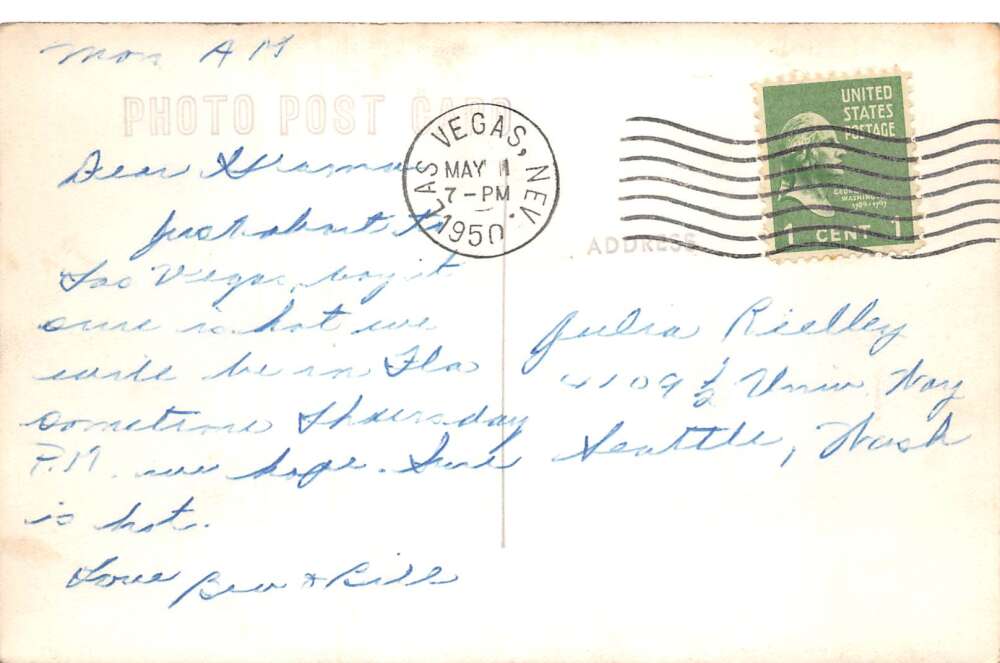 Mon A M
PHOTO POST CARD
Dear Grama
Just about to
Las Vegas, boy it
sure is hot we
will be in Fla
sometime Thuersday
P.M. we hope. Sure
is hot.
Love Bev & Bill
LAS VEGAS, NEV.
MAY 1
7-PM
1950
UNITED
STATES
POSTAGE
GEORGE
WASHINGTON
1 CENT 1
ADDRESS
Julia Rielley
4109 ½ Univ. Way
Seattle, Wash